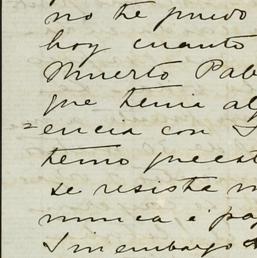 no te puedo
hoy cuanto
Muerto Pab
que tenia al
=encia con
temo que est
se resista
nunca i pa
Sin embargo